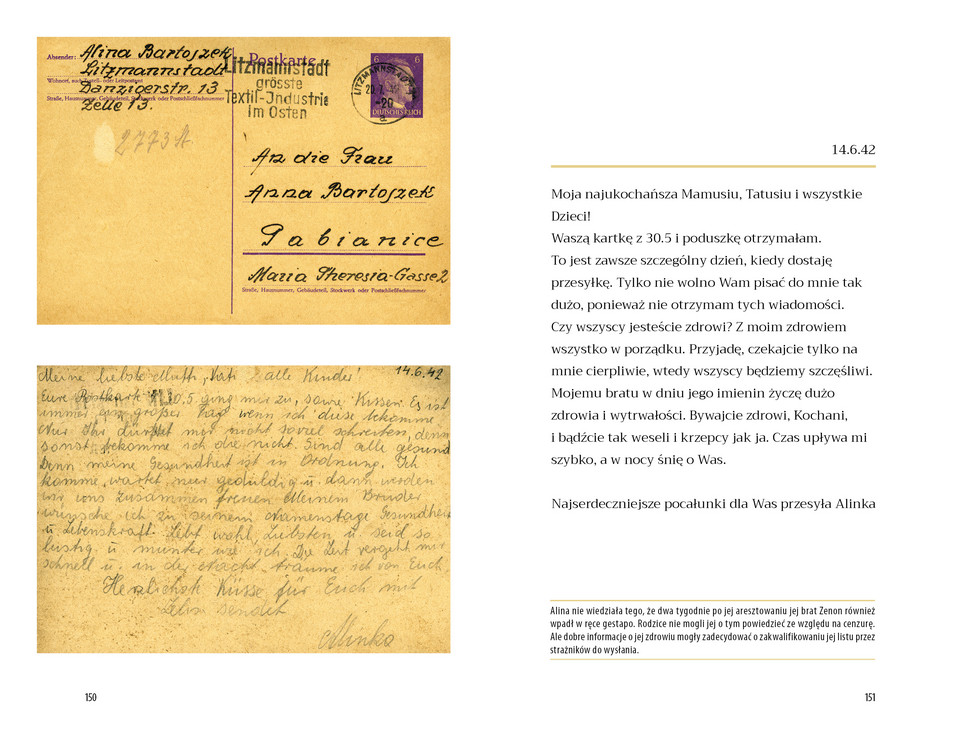 Absender: Alina Bartoszek
Litzmannstadt
Danzigerstr. 13
Straße, Hausnummer, Gebäudeteil, Stockwerk oder Postschließfachnummer
Zelle 13.
2773 A
Postkarte
Litzmannstadt
grösste
Textil-Industrie
im Osten
6 6
DEUTSCHES REICH
An die Frau
Anna Bartoszek
Pabianice
Maria Theresia-Gasse 2
Straße, Hausnummer, Gebäudeteil, Stockwerk oder Postschließfachnummer
Meine liebste Mutti, Vati alle Kinder! 14.6.42
Eure Postkarte 30.5 ging mir zu, sowie Kissen. Es ist
immer ein großer Tag wenn ich diese bekomme
Nur Ihr dürfet mir nicht soviel schreiben, denn
sonst bekomme ich die nicht. Sind alle gesund
Denn meine Gesundheit ist in Ordnung. Ich
komme, wartet nur geduldig u. dann werden
wir uns zusammen freuen Meinem Bruder
wünsche ich zu seinem Namenstage Gesundheit
u. Lebenskraft. Lebt wohl, Liebsten u. seid so
lustig u. munter wie ich. Die Zeit vergeht mir
schnell u. in der Nacht träume ich von Euch.
Herzlichste Küsse für Euch mit
sendet
Alinka
150
14.6.42
Moja najukochańsza Mamusiu, Tatusiu i wszystkie
Dzieci!
Waszą kartkę z 30.5 i poduszkę otrzymałam.
To jest zawsze szczególny dzień, kiedy dostaję
przesyłkę. Tylko nie wolno Wam pisać do mnie tak
dużo, ponieważ nie otrzymam tych wiadomości.
Czy wszyscy jesteście zdrowi? Z moim zdrowiem
wszystko w porządku. Przyjadę, czekajcie tylko na
mnie cierpliwie, wtedy wszyscy będziemy szczęśliwi.
Mojemu bratu w dniu jego imienin życzę dużo
zdrowia i wytrwałości. Bywajcie zdrowi, Kochani,
i bądźcie tak weseli i krzepcy jak ja. Czas upływa mi
szybko, a w nocy śnię o Was.
Najserdeczniejsze pocałunki dla Was przesyła Alinka
Alina nie wiedziała tego, że dwa tygodnie po jej aresztowaniu jej brat Zenon również
wpadł w ręce gestapo. Rodzice nie mogli jej o tym powiedzieć ze względu na cenzurę.
Ale dobre informacje o jej zdrowiu mogły zadecydować o zakwalifikowaniu jej listu przez
strażników do wysłania.
151